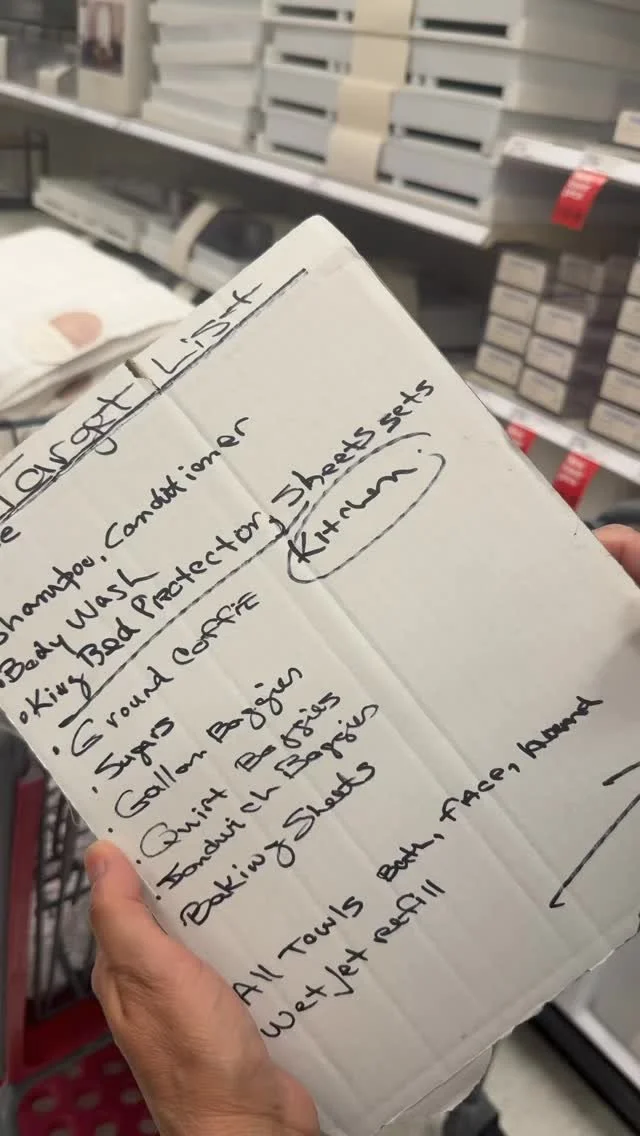 Target List
Shampoo, Conditioner
• Body Wash
• King Bed Protector, Sheets sets
Kitchen.
• Ground Coffie
• Sugars
• Gallon Baggies
• Quirt Baggies
• Sandwich Baggies
Baking Sheets
All Towls Bath, Face, hand
Wet jet refill